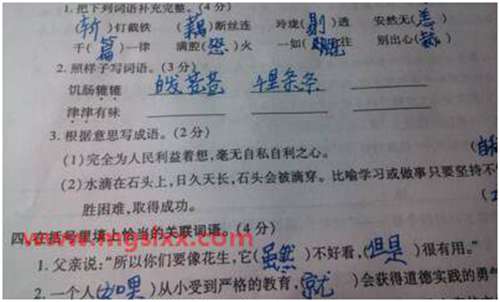 1.把下列词语补充完整。(4分)
(斩)钉截铁 (藕)断丝连 玲珑(剔)透 安然无(恙)
千(篇)一律 满腔(怒)火 一如(既)往 别出心(裁)
2.照样子写词语。(3分)
饥肠辘辘 白发苍苍
津津有味
3.根据意思写成语。(2分)
(1)完全为人民利益着想,毫无自私自利之心。
(2)水滴在石头上,日久天长,石头会被滴穿。比喻学习或做事只要坚持不
胜困难,取得成功。
四、在括号里填上恰当的关联词语。(4分)
www.mgsixx.com
1.父亲说:“所以你们要像花生,它(虽然)不好看,(但是)很有用。”
2.一个人(如果)从小受到严格的教育,(就)会获得道德实践的勇气